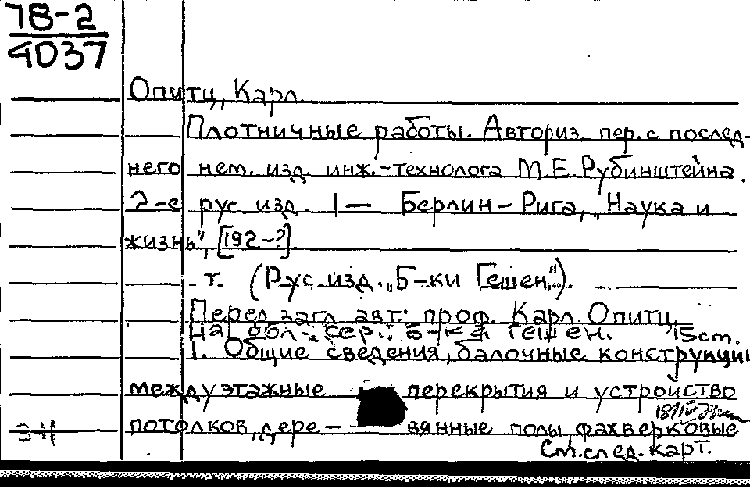 78-2
4037
Опитц, Карл.
Плотничные работы. Авториз. пер. с послед-
него нем. изд. инж.-технолога М.Е. Рубинштейна.
2-е рус. изд. 1— Берлин-Рига, „Наука и
жизнь", [192-?]
- т. (Рус. изд. „Б-ки Гешен").
Перед загл. авт.: проф. Карл Опитц.
На обл.: сер.: Б-ка Гешен. 15 cm.
1. Общие сведения, балочные конструкции
междуэтажные перекрытия и устройство
потолков, дере- вянные полы, фахверковые
См. след. карт.